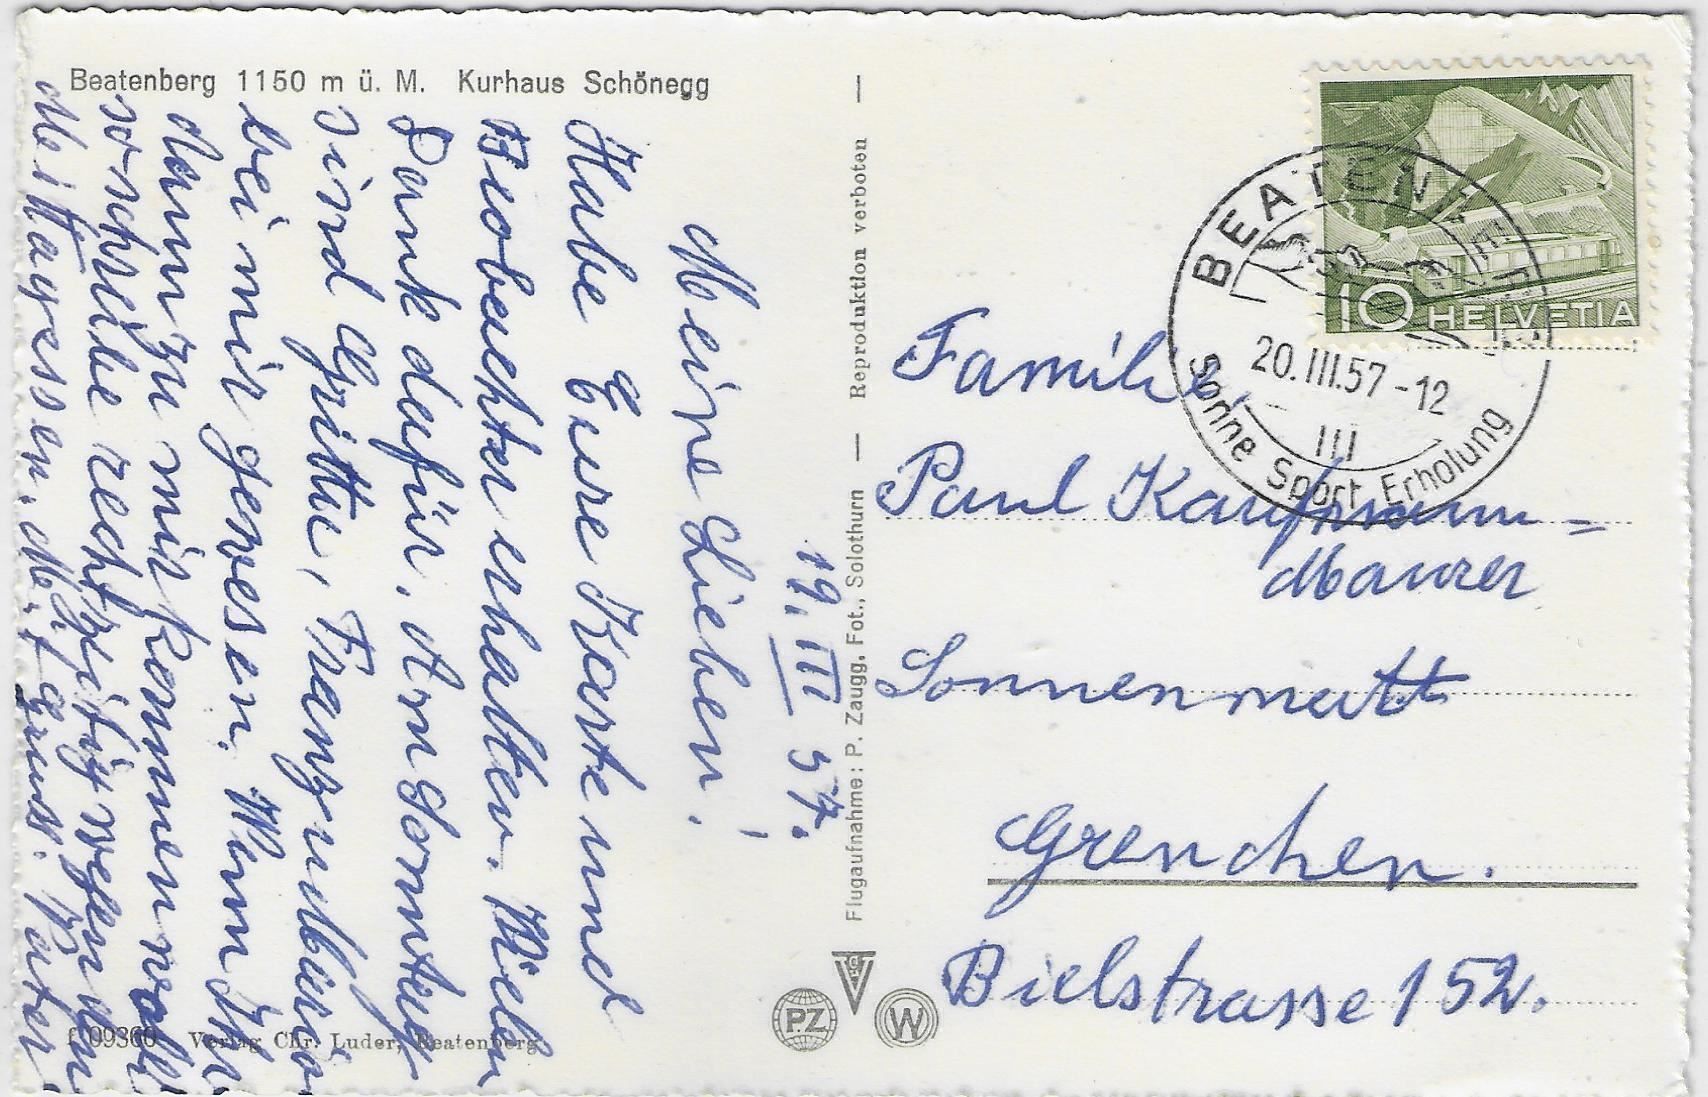 Beatenberg 1150 m ü. M. Kurhaus Schönegg
19. III 57.
Meine Lieben!
Habe Eure Karte und
Beobachter erhalten. Vielen
Dank dafür. Am Sonntag
sind Gritti, Franz u.
bei mir gewesen. Wenn Ihr
dann zu mir kommen wollt
so schreibe rechtzeitig wegen dem
Mittagessen. M. f. Gruss. Vater
f 09360 Verlag Chr. Luder, Beatenberg
Flugaufnahme: P. Zaugg, Fot., Solothurn — Reproduktion verboten —
PZ
W
10 HELVETIA
BEATENBERG
20.III.57-12
III
Sonne Sport Erholung
Familie
Paul Kaufmann=
Maurer
Sonnenmatt
Grenchen.
Bielstrasse 152.